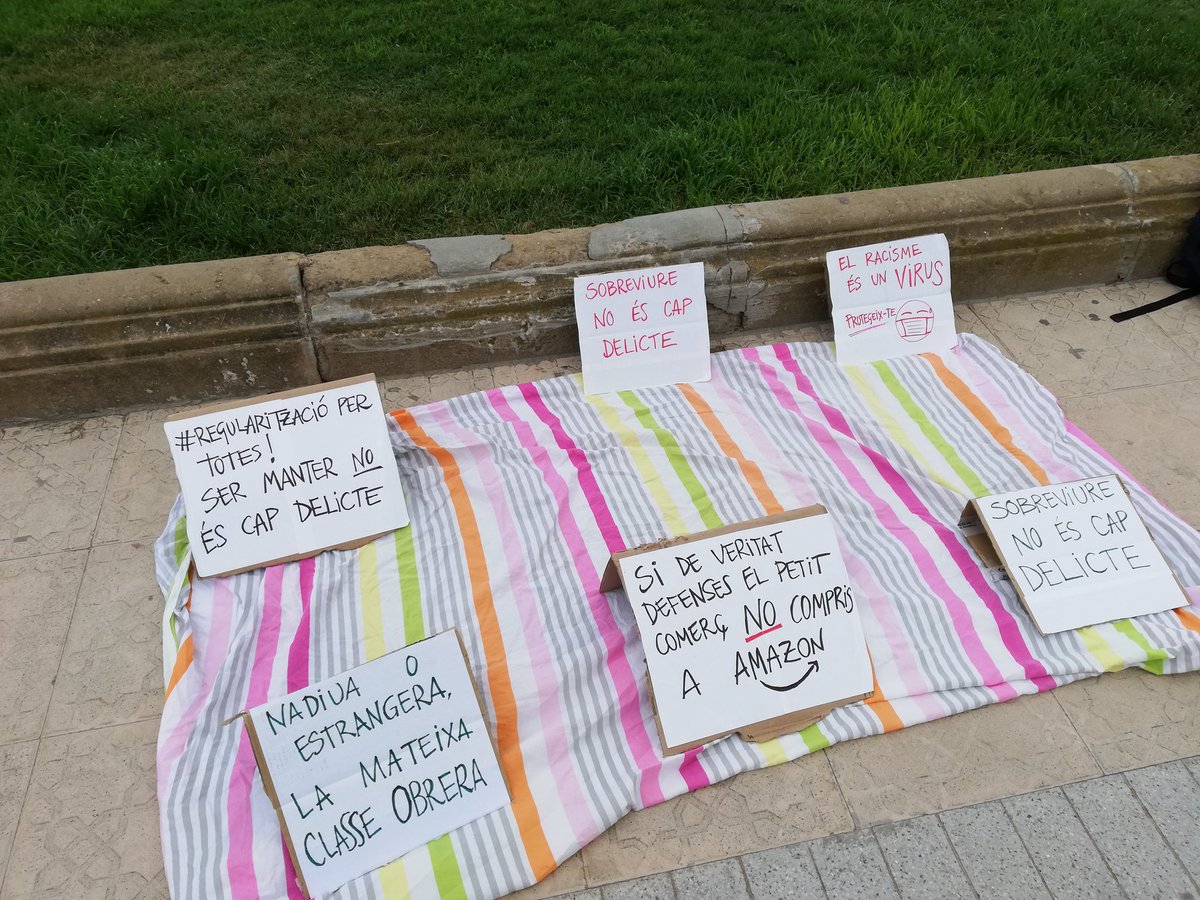 SOBREVIURE
NO ÉS CAP
DELICTE
EL RACISME
ÉS UN VIRUS
PROTEGEIX-TE
#REGULARITZACIÓ PER
TOTES!
SER MANTER NO
ÉS CAP DELICTE
SI DE VERITAT
DEFENSES EL PETIT
COMERÇ NO COMPRIS
A AMAZON
SOBREVIURE
NO ÉS CAP
DELICTE
NADIUA O
ESTRANGERA,
LA MATEIXA
CLASSE OBRERA